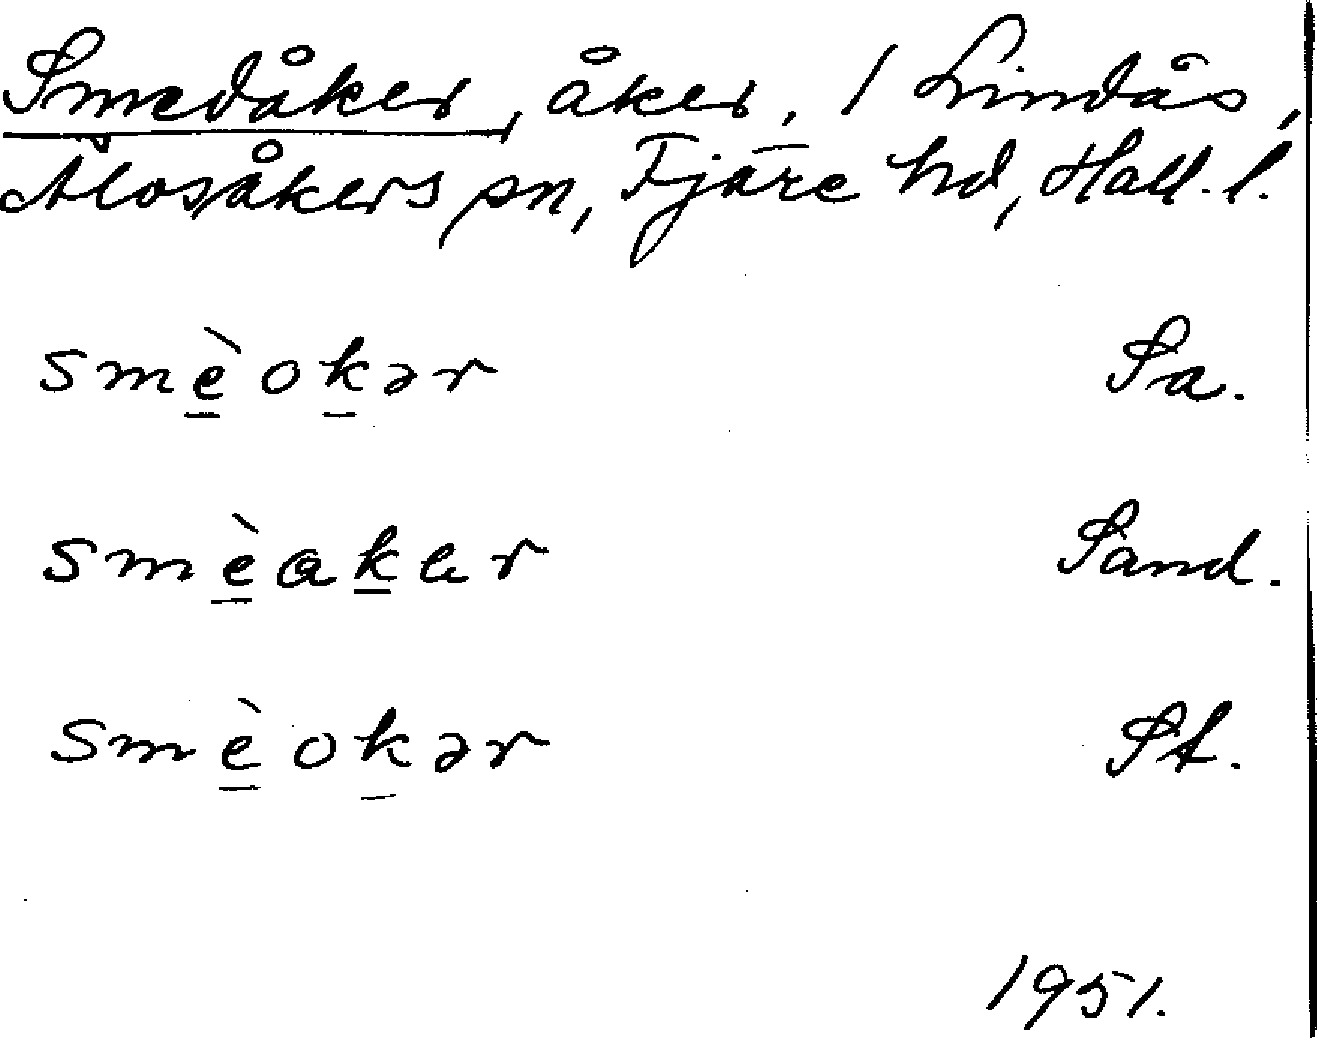 Smedåker, åker, 1 Lindås,
Älvsåkers sn, Fjäre hd, Hall. l.
smèokər Sa.
smèakər Sand.
smèokər St.
1951.